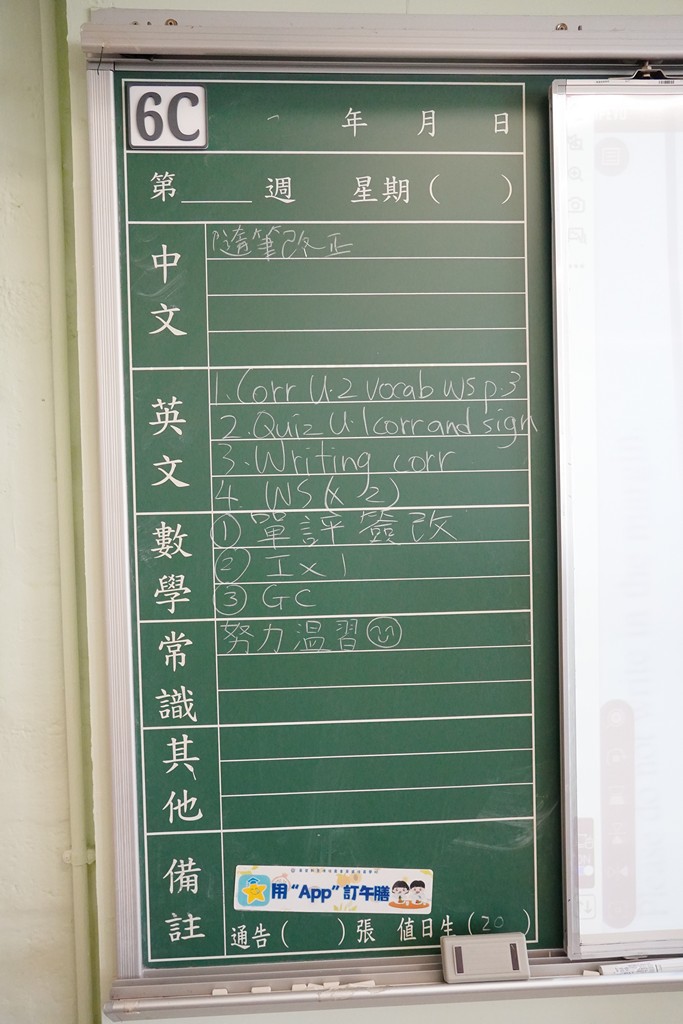 6C 年 月 日
第____週 星期( )
中文
隨筆改正
英文
1. Corr U.2 vocab WS p.3
2. Quiz U.1 corr and sign
3. Writing corr
4. WS (x 2)
數學
① 單評簽改
② 工 x 1
③ GC
常識
努力溫習
其他
備註
用“App”訂午膳
通告( )張 值日生(20 )